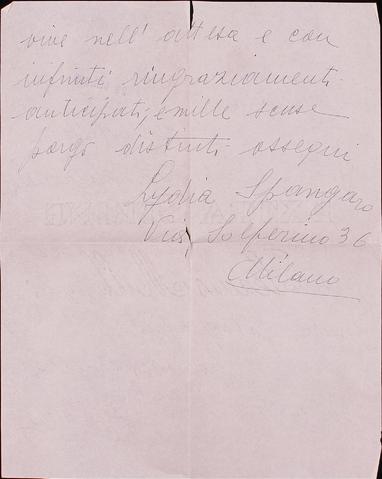 vive nell' attesa e con
infiniti ringraziamenti
anticipati, e mille scuse
porgo distinti ossequi
Lydia Spangaro
Via Solferino 36
Milano